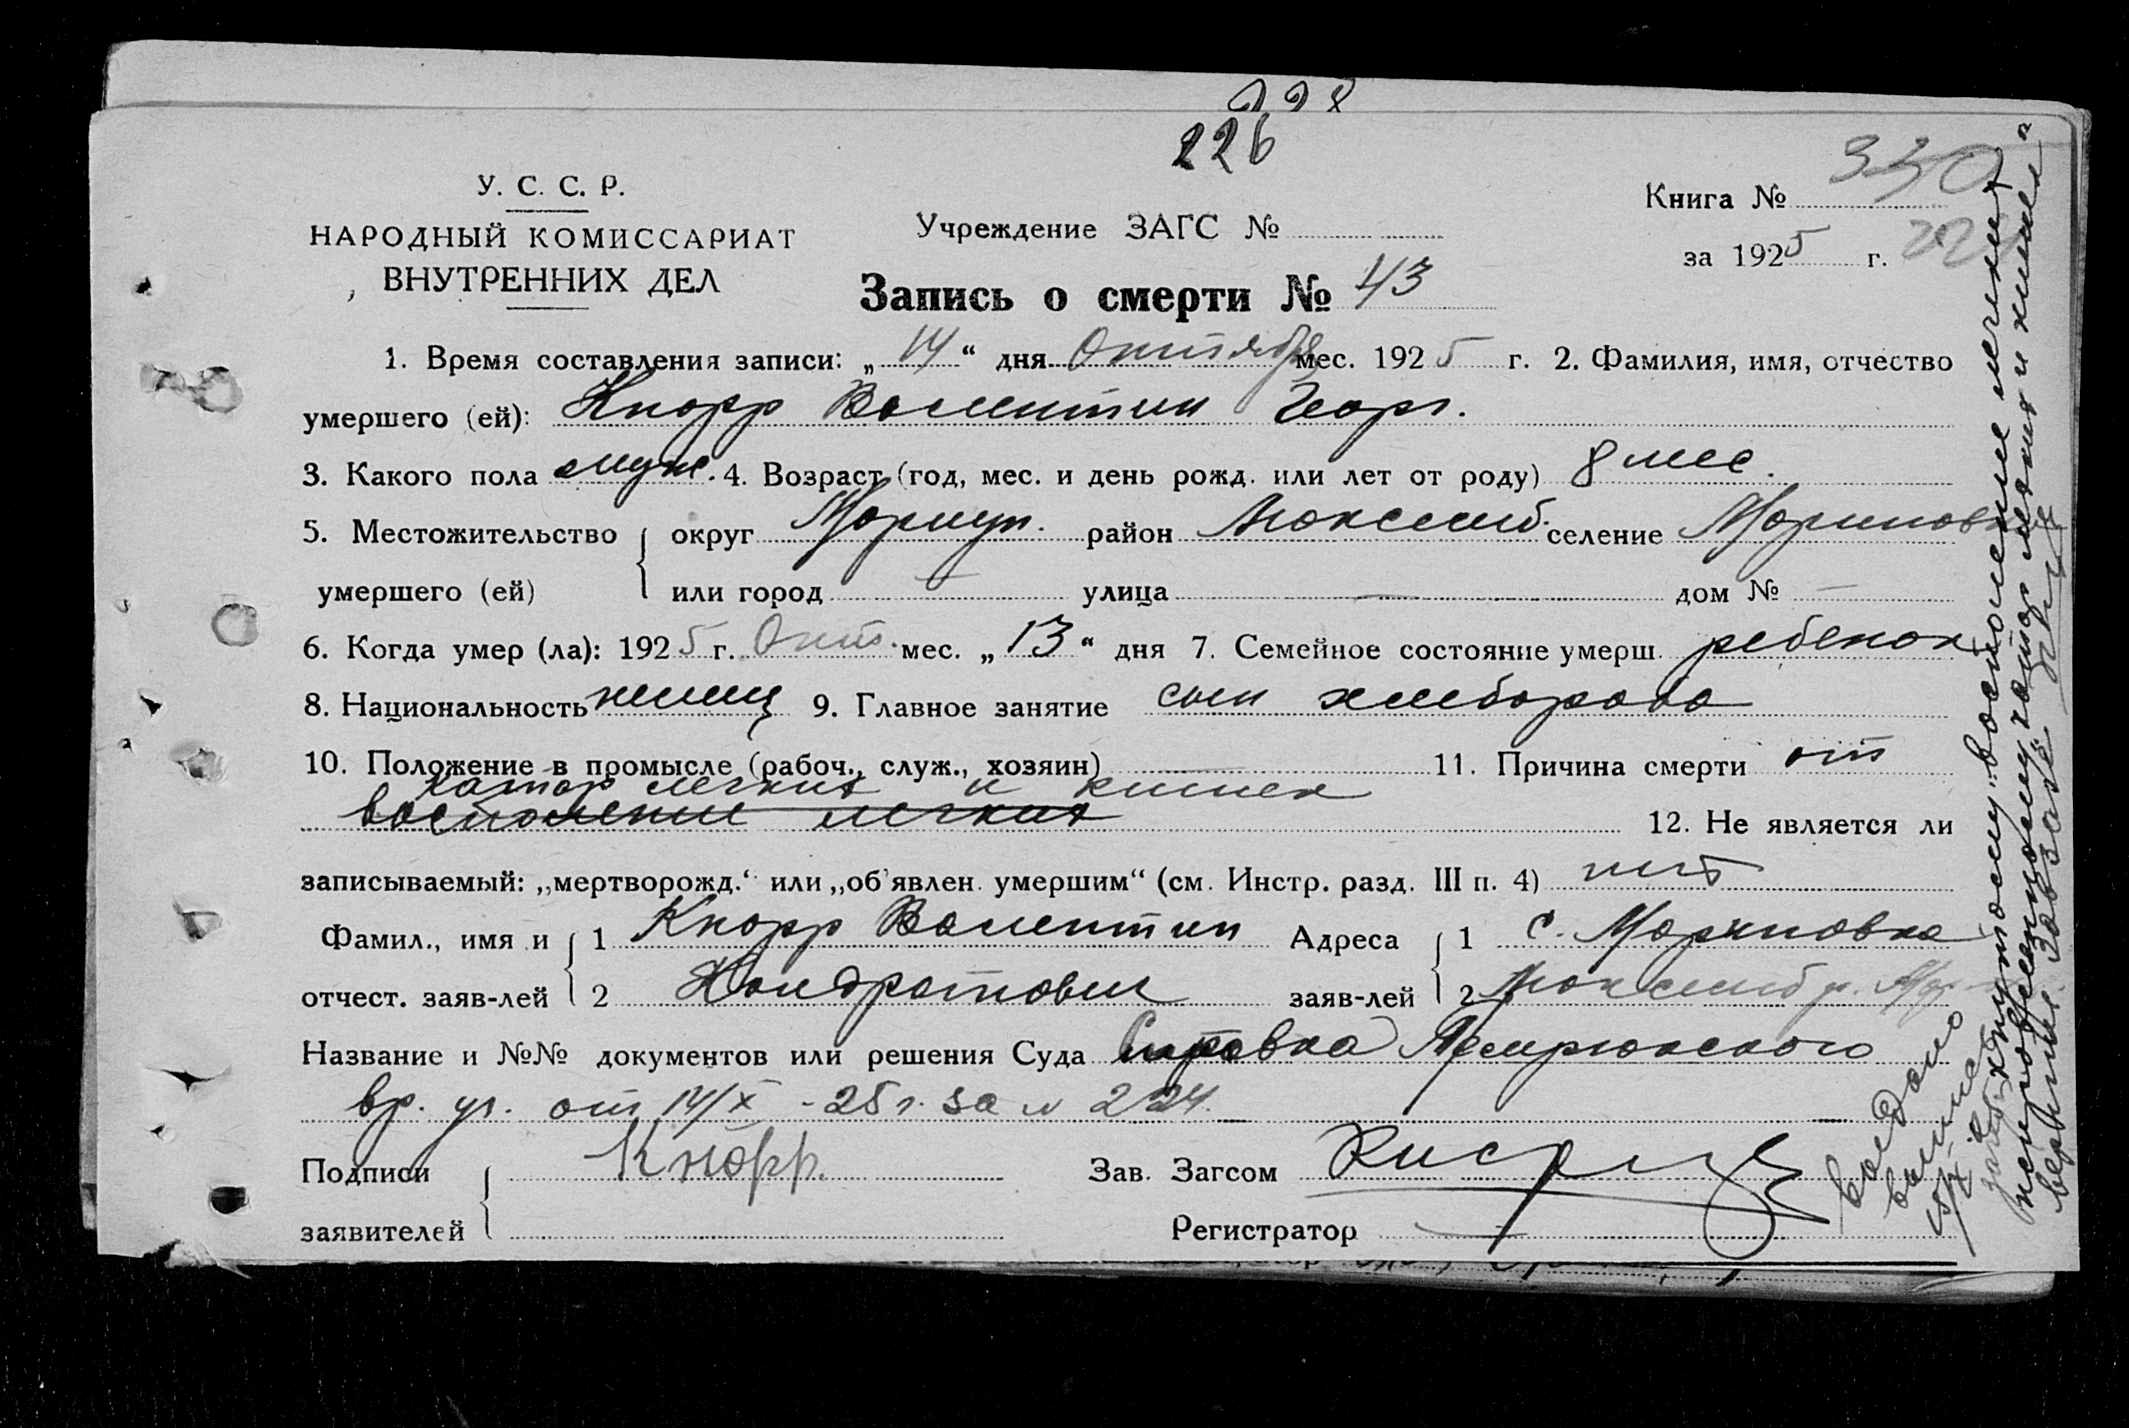 228
226
330
У. С. С. Р.
НАРОДНЫЙ КОМИССАРИАТ
ВНУТРЕННИХ ДЕЛ
Учреждение ЗАГС №
Книга №
за 1925 г.
Запись о смерти № 43
1. Время составления записи: „14“ дня Октября мес. 1925 г. 2. Фамилия, имя, отчество
умершего (ей): Кнорр Валентин Георг.
3. Какого пола муж. 4. Возраст (год, мес. и день рожд. или лет от роду) 8 мес.
5. Местожительство округ Мариуп. район Люксемб. селение Мариновка
умершего (ей) или город — улица — дом № —
6. Когда умер (ла): 1925 г. Окт. мес. „13“ дня 7. Семейное состояние умерш. ребенок
8. Национальность немец 9. Главное занятие сын хлебороба
10. Положение в промысле (рабоч., служ., хозяин) — 11. Причина смерти от
катар легких и кишек
воспаление легких
12. Не является ли
записываемый: „мертворожд.“ или „об'явлен. умершим“ (см. Инстр. разд. III п. 4) нет
Фамил., имя и 1 Кнорр Валентин Адреса 1 с. Мариновка
отчест. заяв-лей 2 Кондратович заяв-лей 2 Люксембр. Мар.
Название и №№ документов или решения Суда Справка Темрюкского
вр. уч. от 14/X - 25 г. за № 224.
Подписи Кнорр. Зав. Загсом
заявителей Регистратор —
зачеркнутому „воспаление легких“
исправленному „катар легких и кишек“
верить